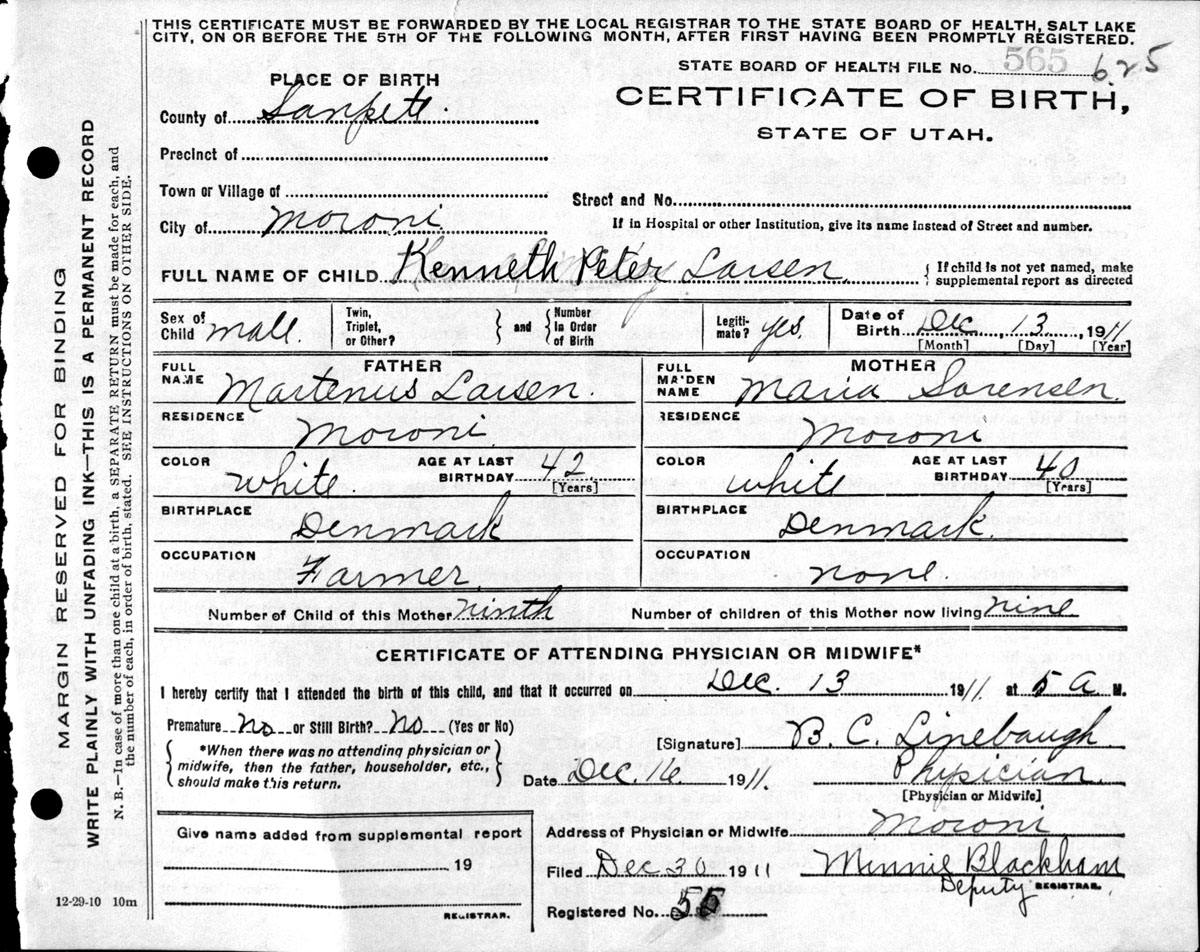 THIS CERTIFICATE MUST BE FORWARDED BY THE LOCAL REGISTRAR TO THE STATE BOARD OF HEALTH, SALT LAKE
CITY, ON OR BEFORE THE 5TH OF THE FOLLOWING MONTH, AFTER FIRST HAVING BEEN PROMPTLY REGISTERED.
STATE BOARD OF HEALTH FILE No. 565 625
PLACE OF BIRTH
CERTIFICATE OF BIRTH,
County of Sanpete
STATE OF UTAH.
Precinct of
Town or Village of
Street and No.
City of Moroni
If in Hospital or other Institution, give its name instead of Street and number.
FULL NAME OF CHILD Kenneth Peter Larsen
{ If child is not yet named, make
supplemental report as directed
Sex of Child Male.
Twin, Triplet, or Other? } and { Number in Order of Birth
Legitimate? yes.
Date of Birth Dec. 13, 1911
[Month] [Day] [Year]
FATHER
FULL NAME Martenus Larsen.
MOTHER
FULL MAIDEN NAME Maria Sorensen
RESIDENCE Moroni
RESIDENCE Moroni
COLOR White. AGE AT LAST BIRTHDAY 42 [Years]
COLOR White AGE AT LAST BIRTHDAY 40 [Years]
BIRTHPLACE Denmark
BIRTHPLACE Denmark.
OCCUPATION Farmer
OCCUPATION none.
Number of Child of this Mother ninth
Number of children of this Mother now living nine
CERTIFICATE OF ATTENDING PHYSICIAN OR MIDWIFE*
I hereby certify that I attended the birth of this child, and that it occurred on Dec. 13 1911. at 5 A M.
Premature No or Still Birth? No (Yes or No)
{ *When there was no attending physician or
midwife, then the father, householder, etc.,
should make this return. }
[Signature] B. C. Linebaugh.
Date Dec. 16 1911. Physician.
[Physician or Midwife]
Give name added from supplemental report
19
REGISTRAR.
12-29-10 10m
Address of Physician or Midwife Moroni
Filed Dec 30 1911 Minnie Blackham
Deputy REGISTRAR.
Registered No.
MARGIN RESERVED FOR BINDING
WRITE PLAINLY WITH UNFADING INK—THIS IS A PERMANENT RECORD
N. B.—In case of more than one child at a birth, a SEPARATE RETURN must be made for each, and
the number of each, in order of birth, stated. SEE INSTRUCTIONS ON OTHER SIDE.